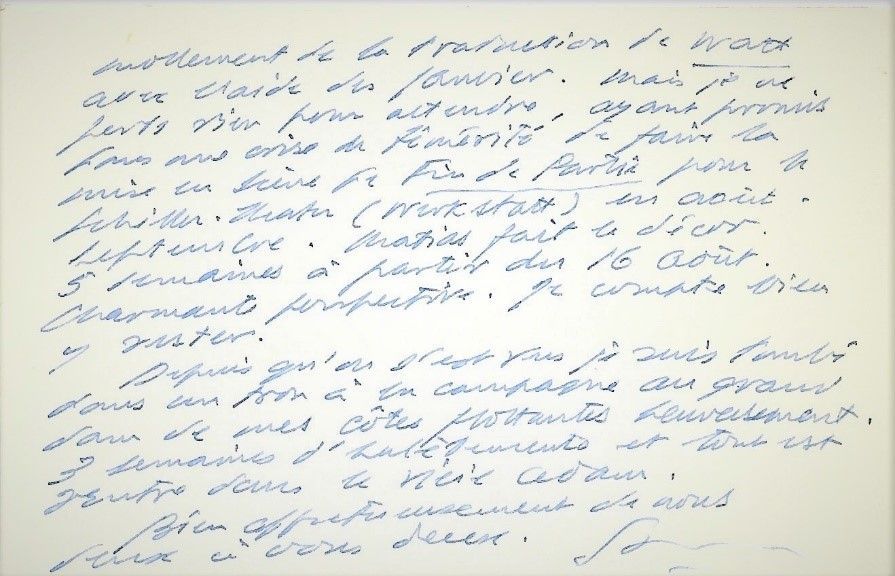 mollement de la traduction de Watt
avec l'aide des Janvier. Mais je ne
perds rien pour attendre, ayant promis
dans une crise de témérité de faire la
mise en scène de Fin de Partie pour le
Schiller-Theater (Werkstatt) en août-
septembre. Matias fait le décor.
5 semaines à partir du 16 août.
Charmante perspective. Je compte bien
y rester.
Depuis qu'on s'est vus je suis tombé
dans un trou à la campagne au grand
dam de mes côtes flottantes heureusement.
3 semaines d' et tout est
rentré dans le vieil Adam.
Bien affectueusement de nous
deux à vous deux.
Sam